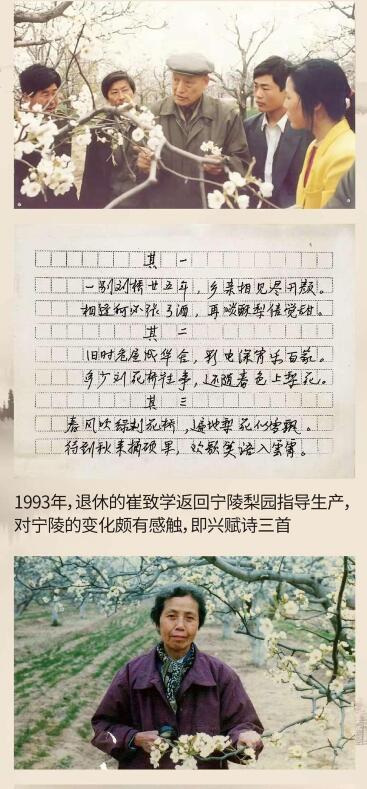 其一
一别刘桥廿五年，乡亲相见尽开颜。
相逢何必张了酒，再啖酥梨倍觉甜。
其二
旧时茅屋成华舍，彩电深宵乐百家。
多少刘花桥往事，还随春色上梨花。
其三
春风吹绿刘花桥，遍地梨花似雪飘。
待到秋来摘硕果，欢歌笑语入云霄。
1993年，退休的崔致学返回宁陵梨园指导生产，
对宁陵的变化颇有感触，即兴赋诗三首